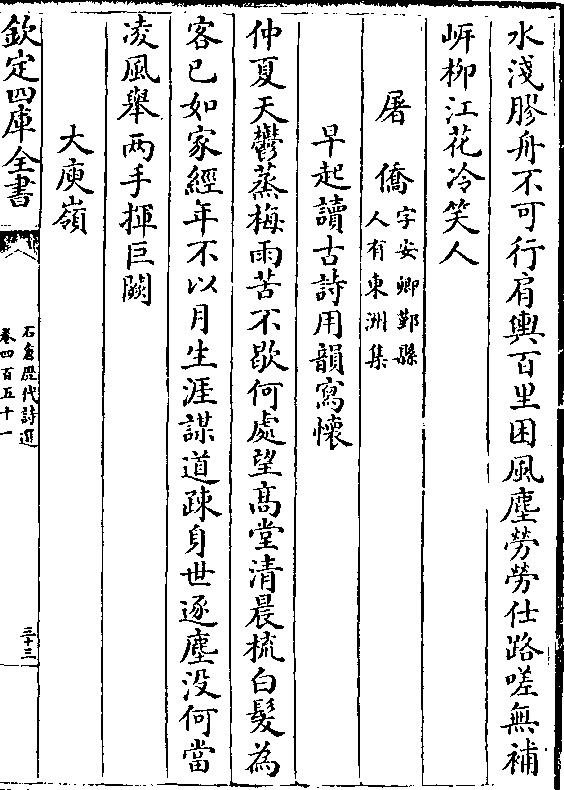 水淺膠舟不可行肩輿百里困風塵勞勞仕路嗟無補
岍柳江花冷笑人
屠僑字安卿鄞縣
人有東洲集
早起讀古詩用韻寫懷
仲夏天鬱蒸梅雨苦不歇何處望髙堂清晨梳白髮為
客已如家經年不以月生涯謀道疎身世逐塵没何當
凌風舉两手揮巨闕
大庾嶺
欽定四庫全書
石倉歴代詩選
卷四百五十一
三十三